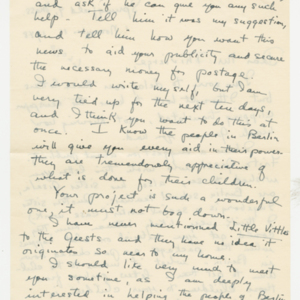 and ask if he can give you any such
help. Tell him it was my suggestion,
and tell him how you want this
news to aid your publicity and secure
the necessary money for postage.
I would write myself, but I am
very tied up for the next ten days,
and I think you want to do this at
once. I know the people in Berlin
will give you every aid in their power
they are tremendously appreciative of
what is done for their children.
Your project is such a wonderful
one it must not bog down.
I have never mentioned Little Vittles
to the Geests and they have no idea it
originates so near to my home.
I should like very much to meet
you sometime, as I am deeply
interested in helping the people of Berlin